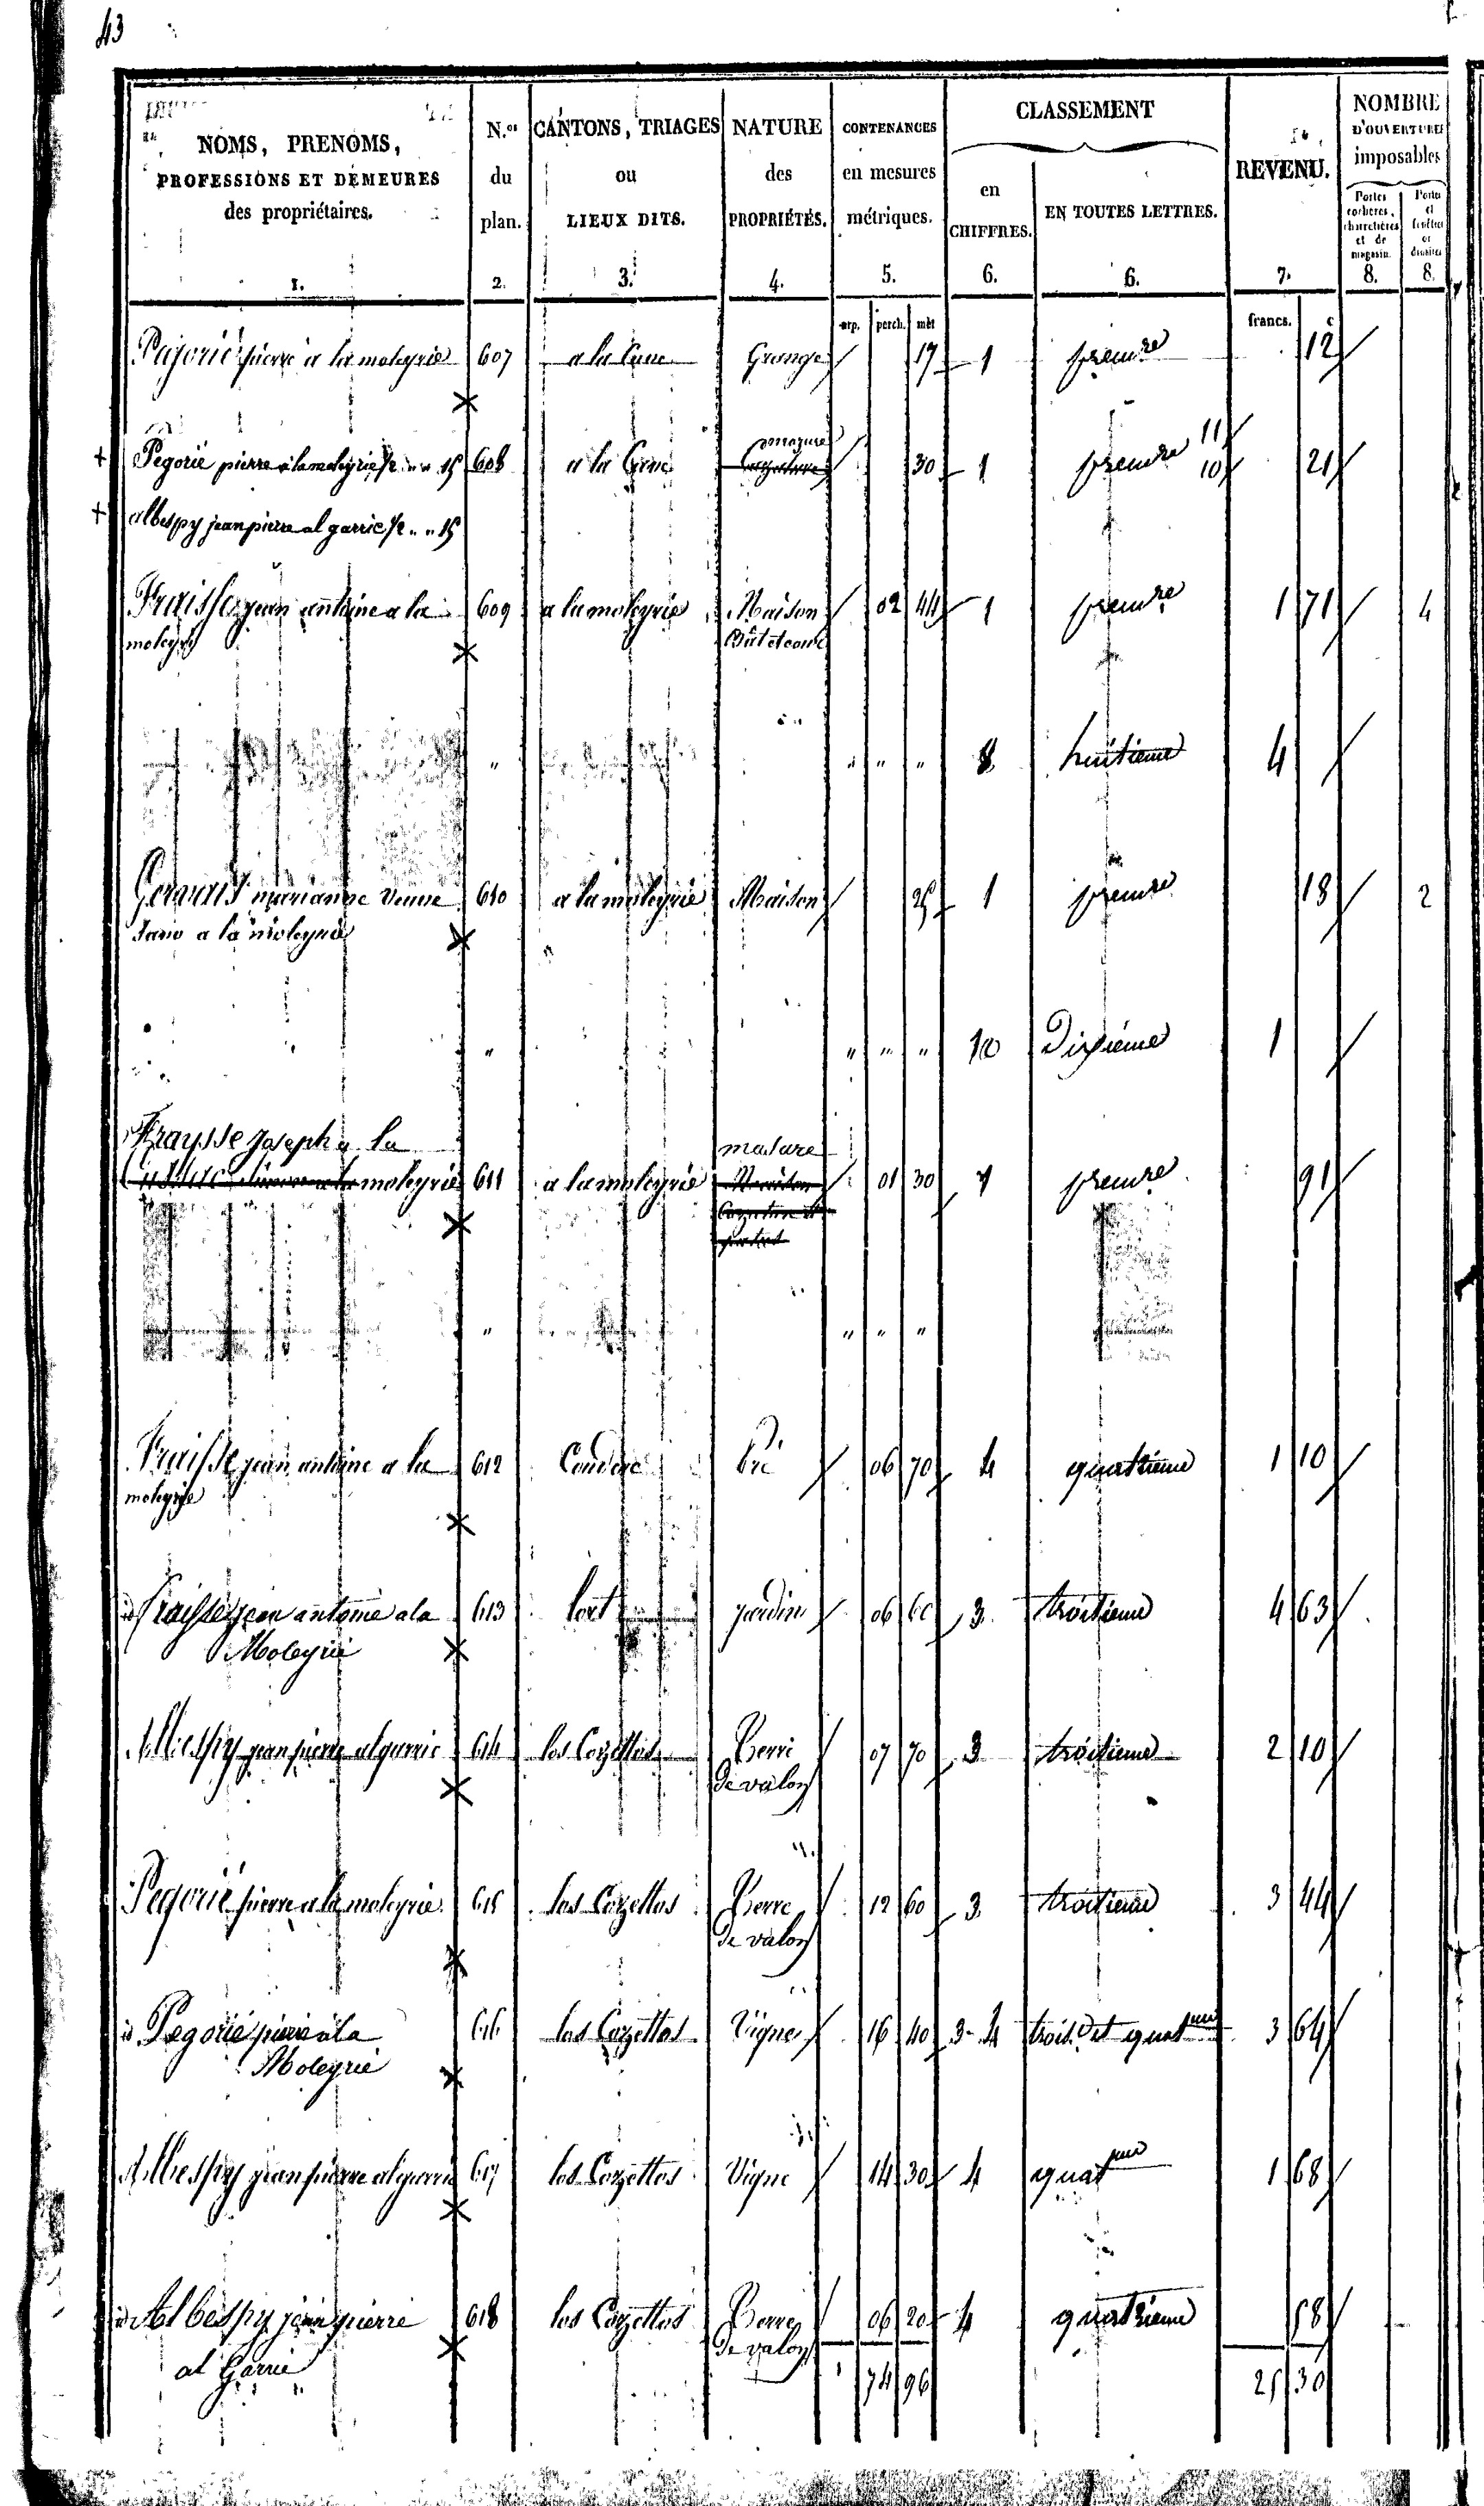 43
NOMS, PRENOMS,
PROFESSIONS ET DEMEURES
des propriétaires.
1.
N.os
du
plan.
2.
CANTONS, TRIAGES
ou
LIEUX DITS.
3.
NATURE
des
PROPRIÉTÉS.
4.
CONTENANCES
en mesures
métriques.
5.
CLASSEMENT
en
CHIFFRES.
6.
EN TOUTES LETTRES.
6.
REVENU.
7.
NOMBRE
D'OUVERTURES
imposables
Portes
cochères,
charretières
et de
magasin.
8.
Portes
et
fenêtres
8.
arp. perch. mèt francs. c
Pegorié pierre a la moleyrie 607 a la Grange 17 1 premre 12
mazure 11
Pegorié pierre a la moleyrie 1/2 " " 15 608 a la 30 1 premre 10 21
albespy jean pierre al garric 1/2 " " 15
Fraisse jean antoine a la 609 a la moleyrie Maison 02 44 1 premre 1 71 4
moleyrie Bât et cour
" " " " 8 huitieme 4
marianne veuve 610 a la moleyrie Maison 25 1 premre 18 2
a la moleyrie
" " " " 10 Dixiéme 1
Fraysse Joseph a la masure
moleyrie 611 a la moleyrie Maison 01 30 1 premre 91
" " " "
Fraisse jean antoine a la 612 Couderc Pré 06 70 4 quatrieme 1 10
moleyrie
id Fraisse jean antoine a la 613 lort jardin 06 60 3 troisieme 4 63
Moleyrie
Albespy jean pierre al garric 614 las Cazettas Terre 07 70 3 troisieme 2 10
De valon
Pegorié pierre a la moleyrie 615 las Cazettas Terre 12 60 3 troisieme 3 44
De valon
id Pegorié pierre a la 616 las Cazettas Vigne 16 40 3-4 trois. et quatme 3 64
Moleyrie
Albespy jean pierre al garric 617 las Cazettas Vigne 14 30 4 quatme 1 68
id Albespy jean pierre 618 las Cazettas Terre 06 20 4 quatrieme 58
al Garric De valon
74 96 25 30